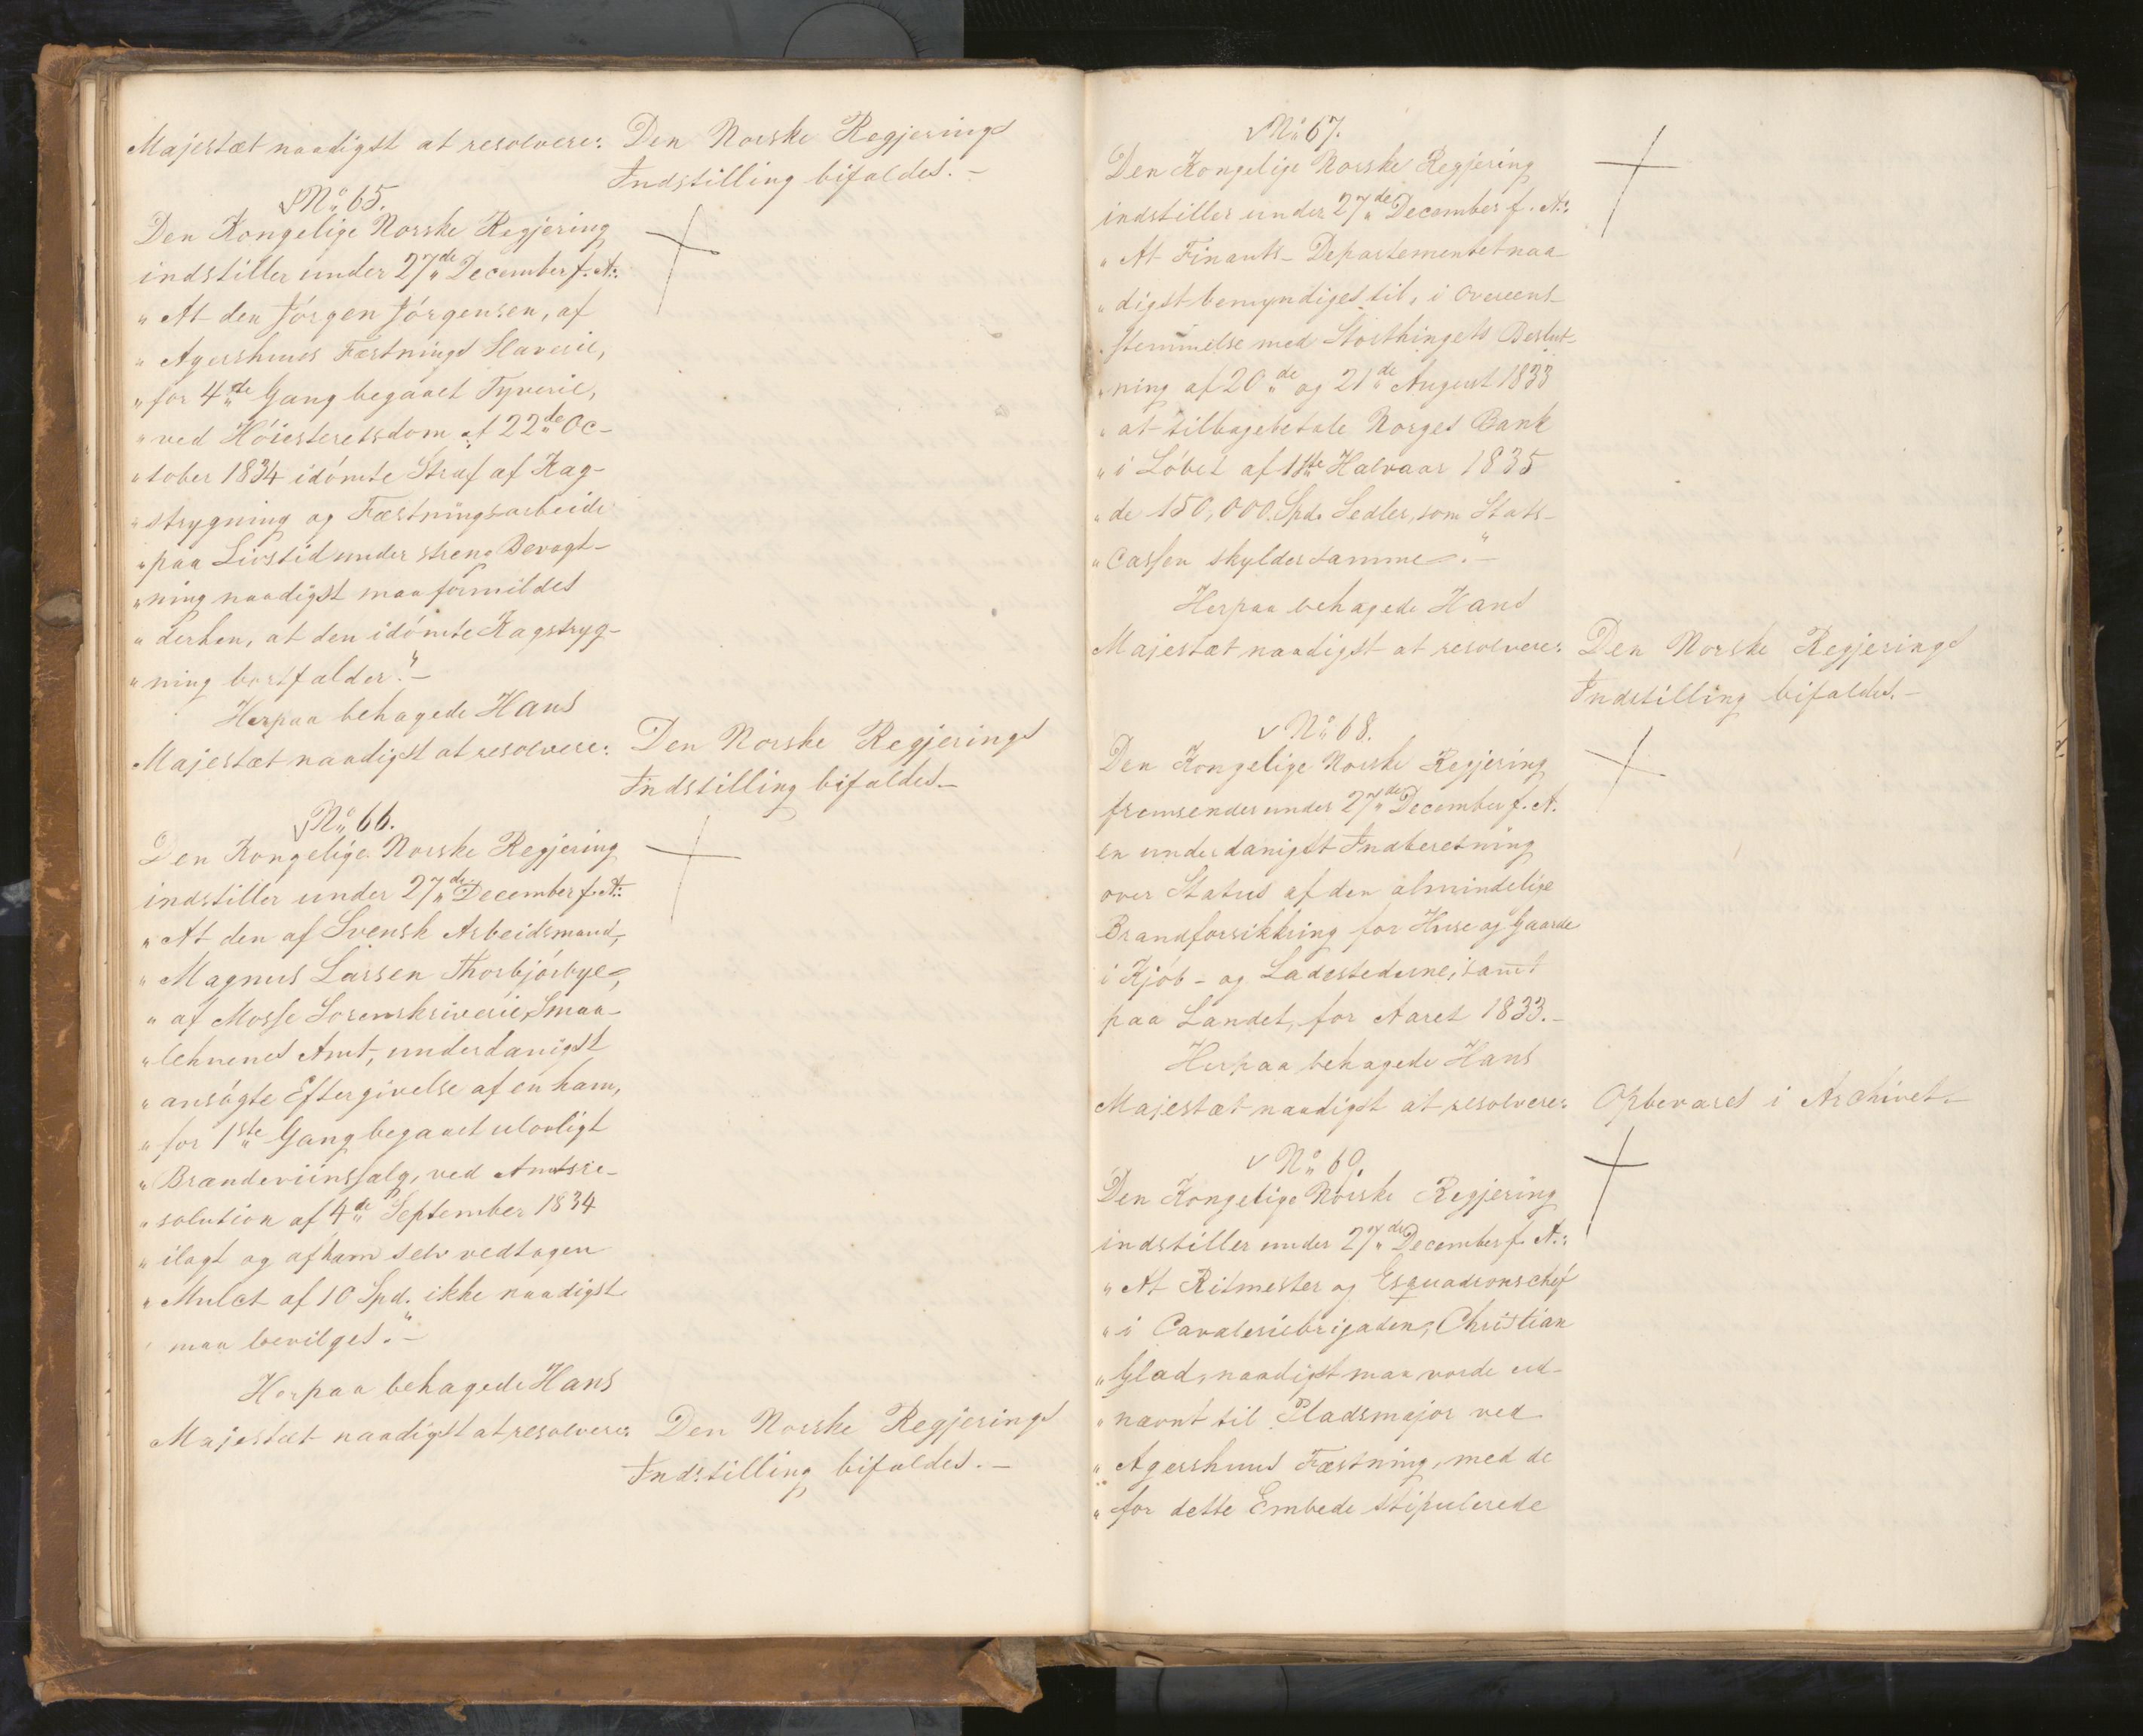 Majestæt naadigst at resolvere: Den Norske Regjerings
Indstilling bifaldes. –
No 65.
Den Kongelige Norske Regjering
indstiller under 27de December f. A.:
„At den Jörgen Jörgensen, af
„Agershuus Fæstnings Slaverie,
„for 4de Gang begaaet Tyverie,
„ved Höiesteretsdom af 22de Oc-
„tober 1834 idömte Straf af Kag-
„strygning og Fæstningsarbeide
„paa Livstid under streng Bevogt-
„ning naadigst maa formildes
„derhen, at den idömte Kagstryg-
„ning bortfalder.“ –
Herpaa behagede Hans
Majestæt naadigst at resolvere: Den Norske Regjerings
Indstilling bifaldes. –
No 66.
Den Kongelige Norske Regjering
indstiller under 27de December f. A.:
„At den af Svensk Arbeidsmand,
„Magnus Larsen Thorbjörbye,
„af Mosse Sorenskriverie, Smaa-
„lehnenes Amt, underdanigst
„ansögte Eftergivelse af en ham,
„for 1ste Gang begaaet ulovligt
„Brændeviinssalg, ved Amtsre-
„solution af 4de September 1834
„ilagt og af ham selv vedtagen
„Mulct af 10 Spd. ikke naadigst
„maa bevilges.“ –
Herpaa behagede Hans
Majestæt naadigst at resolvere: Den Norske Regjerings
Indstilling bifaldes. –
No 67.
Den Kongelige Norske Regjering
indstiller under 27de December f. A.:
„At Finants-Departementet naa-
„digst bemyndiges til, i Overeens-
„stemmelse med Storthingets Beslut-
„ning af 20de og 21de August 1833
„at tilbagebetale Norges Bank
„i Löbet af 1ste Halvaar 1835
„de 150,000 Spd. Sedler, som Stats-
„Cassen skylder samme.“ –
Herpaa behagede Hans
Majestæt naadigst at resolvere: Den Norske Regjerings
Indstilling bifaldes. –
No 68.
Den Kongelige Norske Regjering
fremsender under 27de December f. A.
en underdanigst Indberetning
over Status af den almindelige
Brandforsikkring for Huse og Gaarde
i Kjöb- og Ladestederne, samt
paa Landet, for Aaret 1833. –
Herpaa behagede Hans
Majestæt naadigst at resolvere: Opbevares i Archivet. –
No 69.
Den Kongelige Norske Regjering
indstiller under 27de December f. A.:
„At Ritmester og Esquadronschef
„i Cavaleriebrigaden, Christian
„Glad, naadigst maa vorde ud-
„nævnt til Pladsmajor ved
„Agershuus Fæstning, med de
„for dette Embede stipulerede